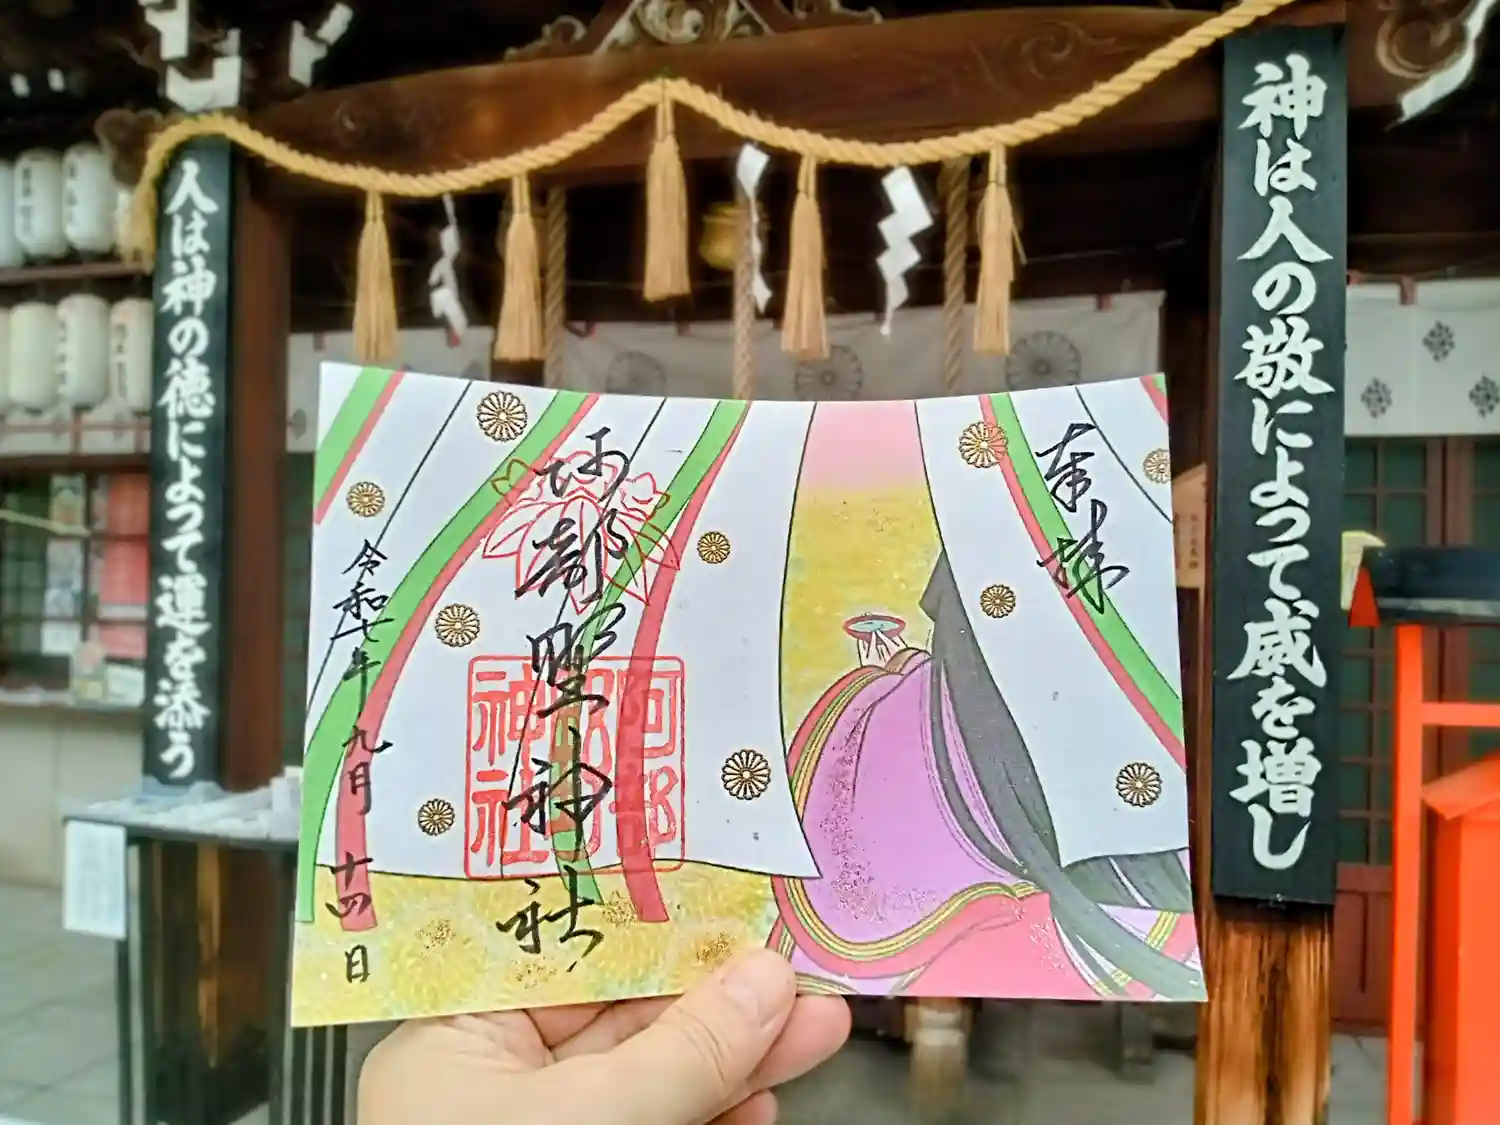 神は人の敬によって威を増し
人は神の徳によって運を添う
奉拝
阿部野神社
阿部
野
神社
令和七年九月十四日